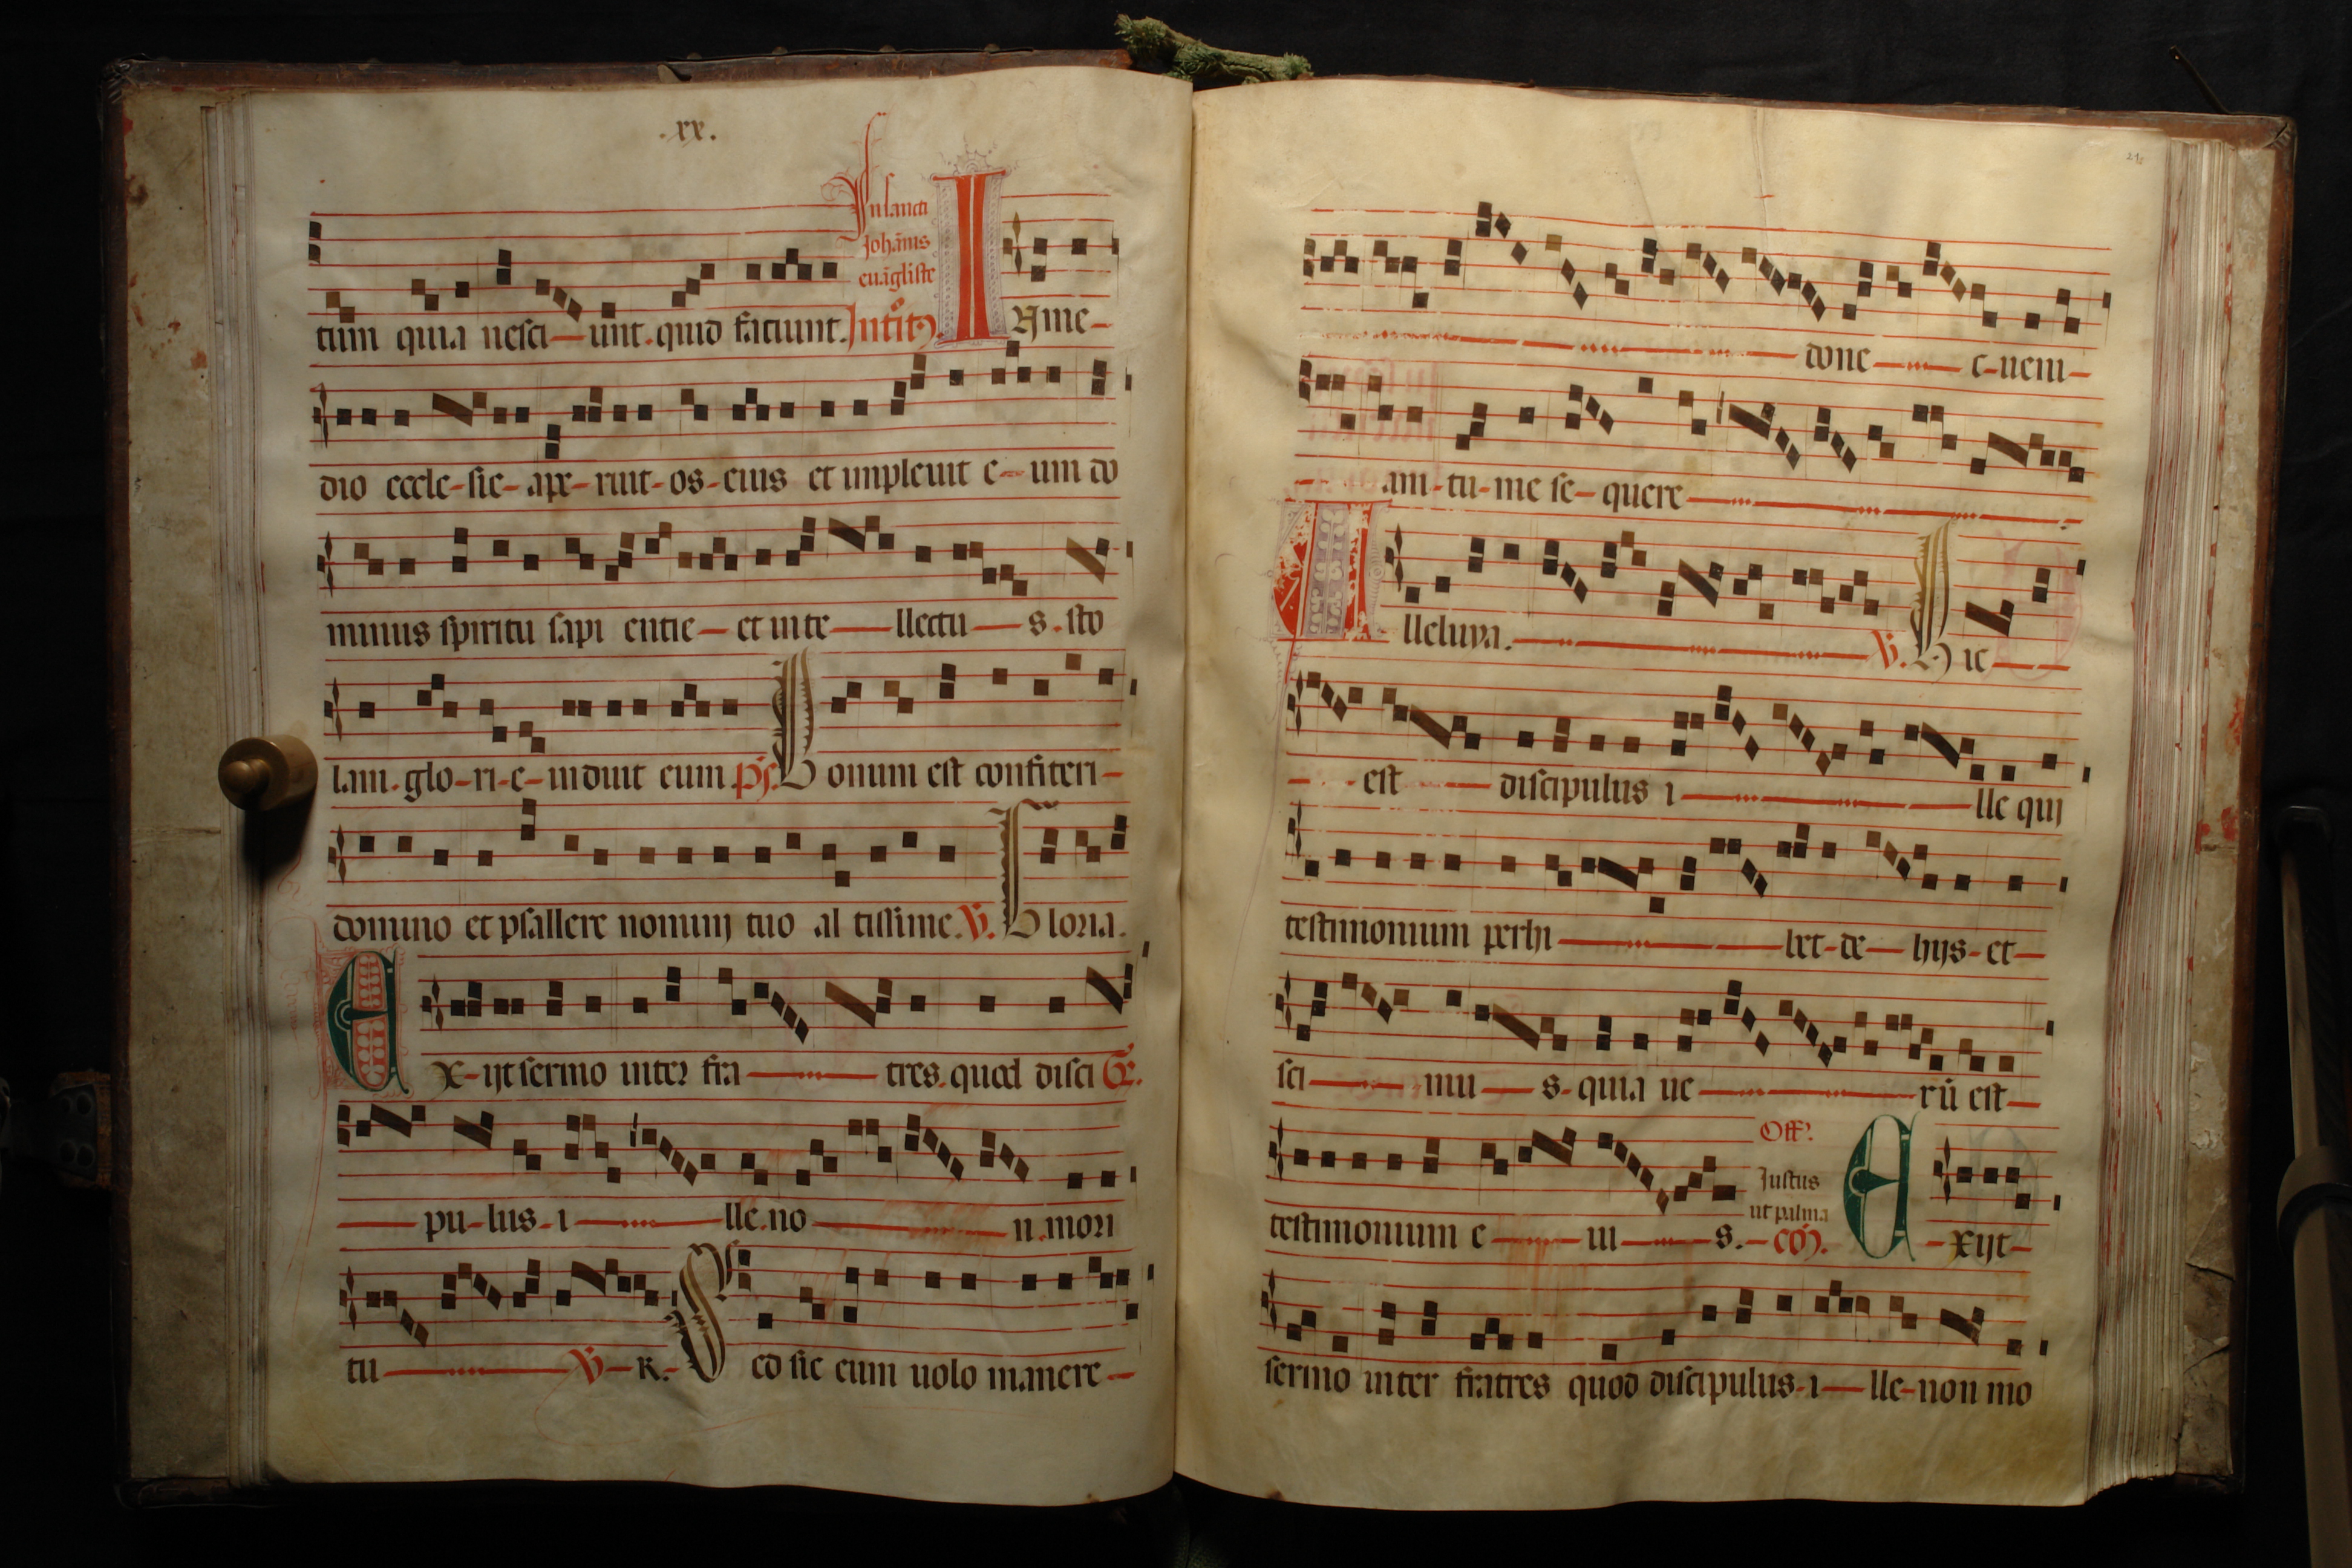 .xx.
In sancti
Johānis
euāgliste
tum quia nesci-unt. quid faciunt. Intrit9. IN me-
dio eccle-sie-ape-ruit-os-eius et impleuit e-um do
minus spiritu sapi entie-et inte-llectu-s. sto
lam. glo-ri-e-induit eum ps. Bonum est confiteri-
domino et psallere nomini tuo al tissime. V. Gloria.
Ex-ijt sermo inter fra-tres. quod disci Gr.
pu-lus-i-lle. no-n. mori
tu-V-R.-Sed sic eum uolo manere-
21
donc-e-ueni-
-am-tu-me se-quere
Alleluya. V. Hic-
-est discipulus i-lle qui
testimonium perhi-bet-de-hijs-et-
sci-mu-s-quia ue-rū est-
Off.
Justus
ut palma
testimonium e-iu-s.-cō. E-xijt-
sermo inter fratres quod discipulus-i-lle-non mo